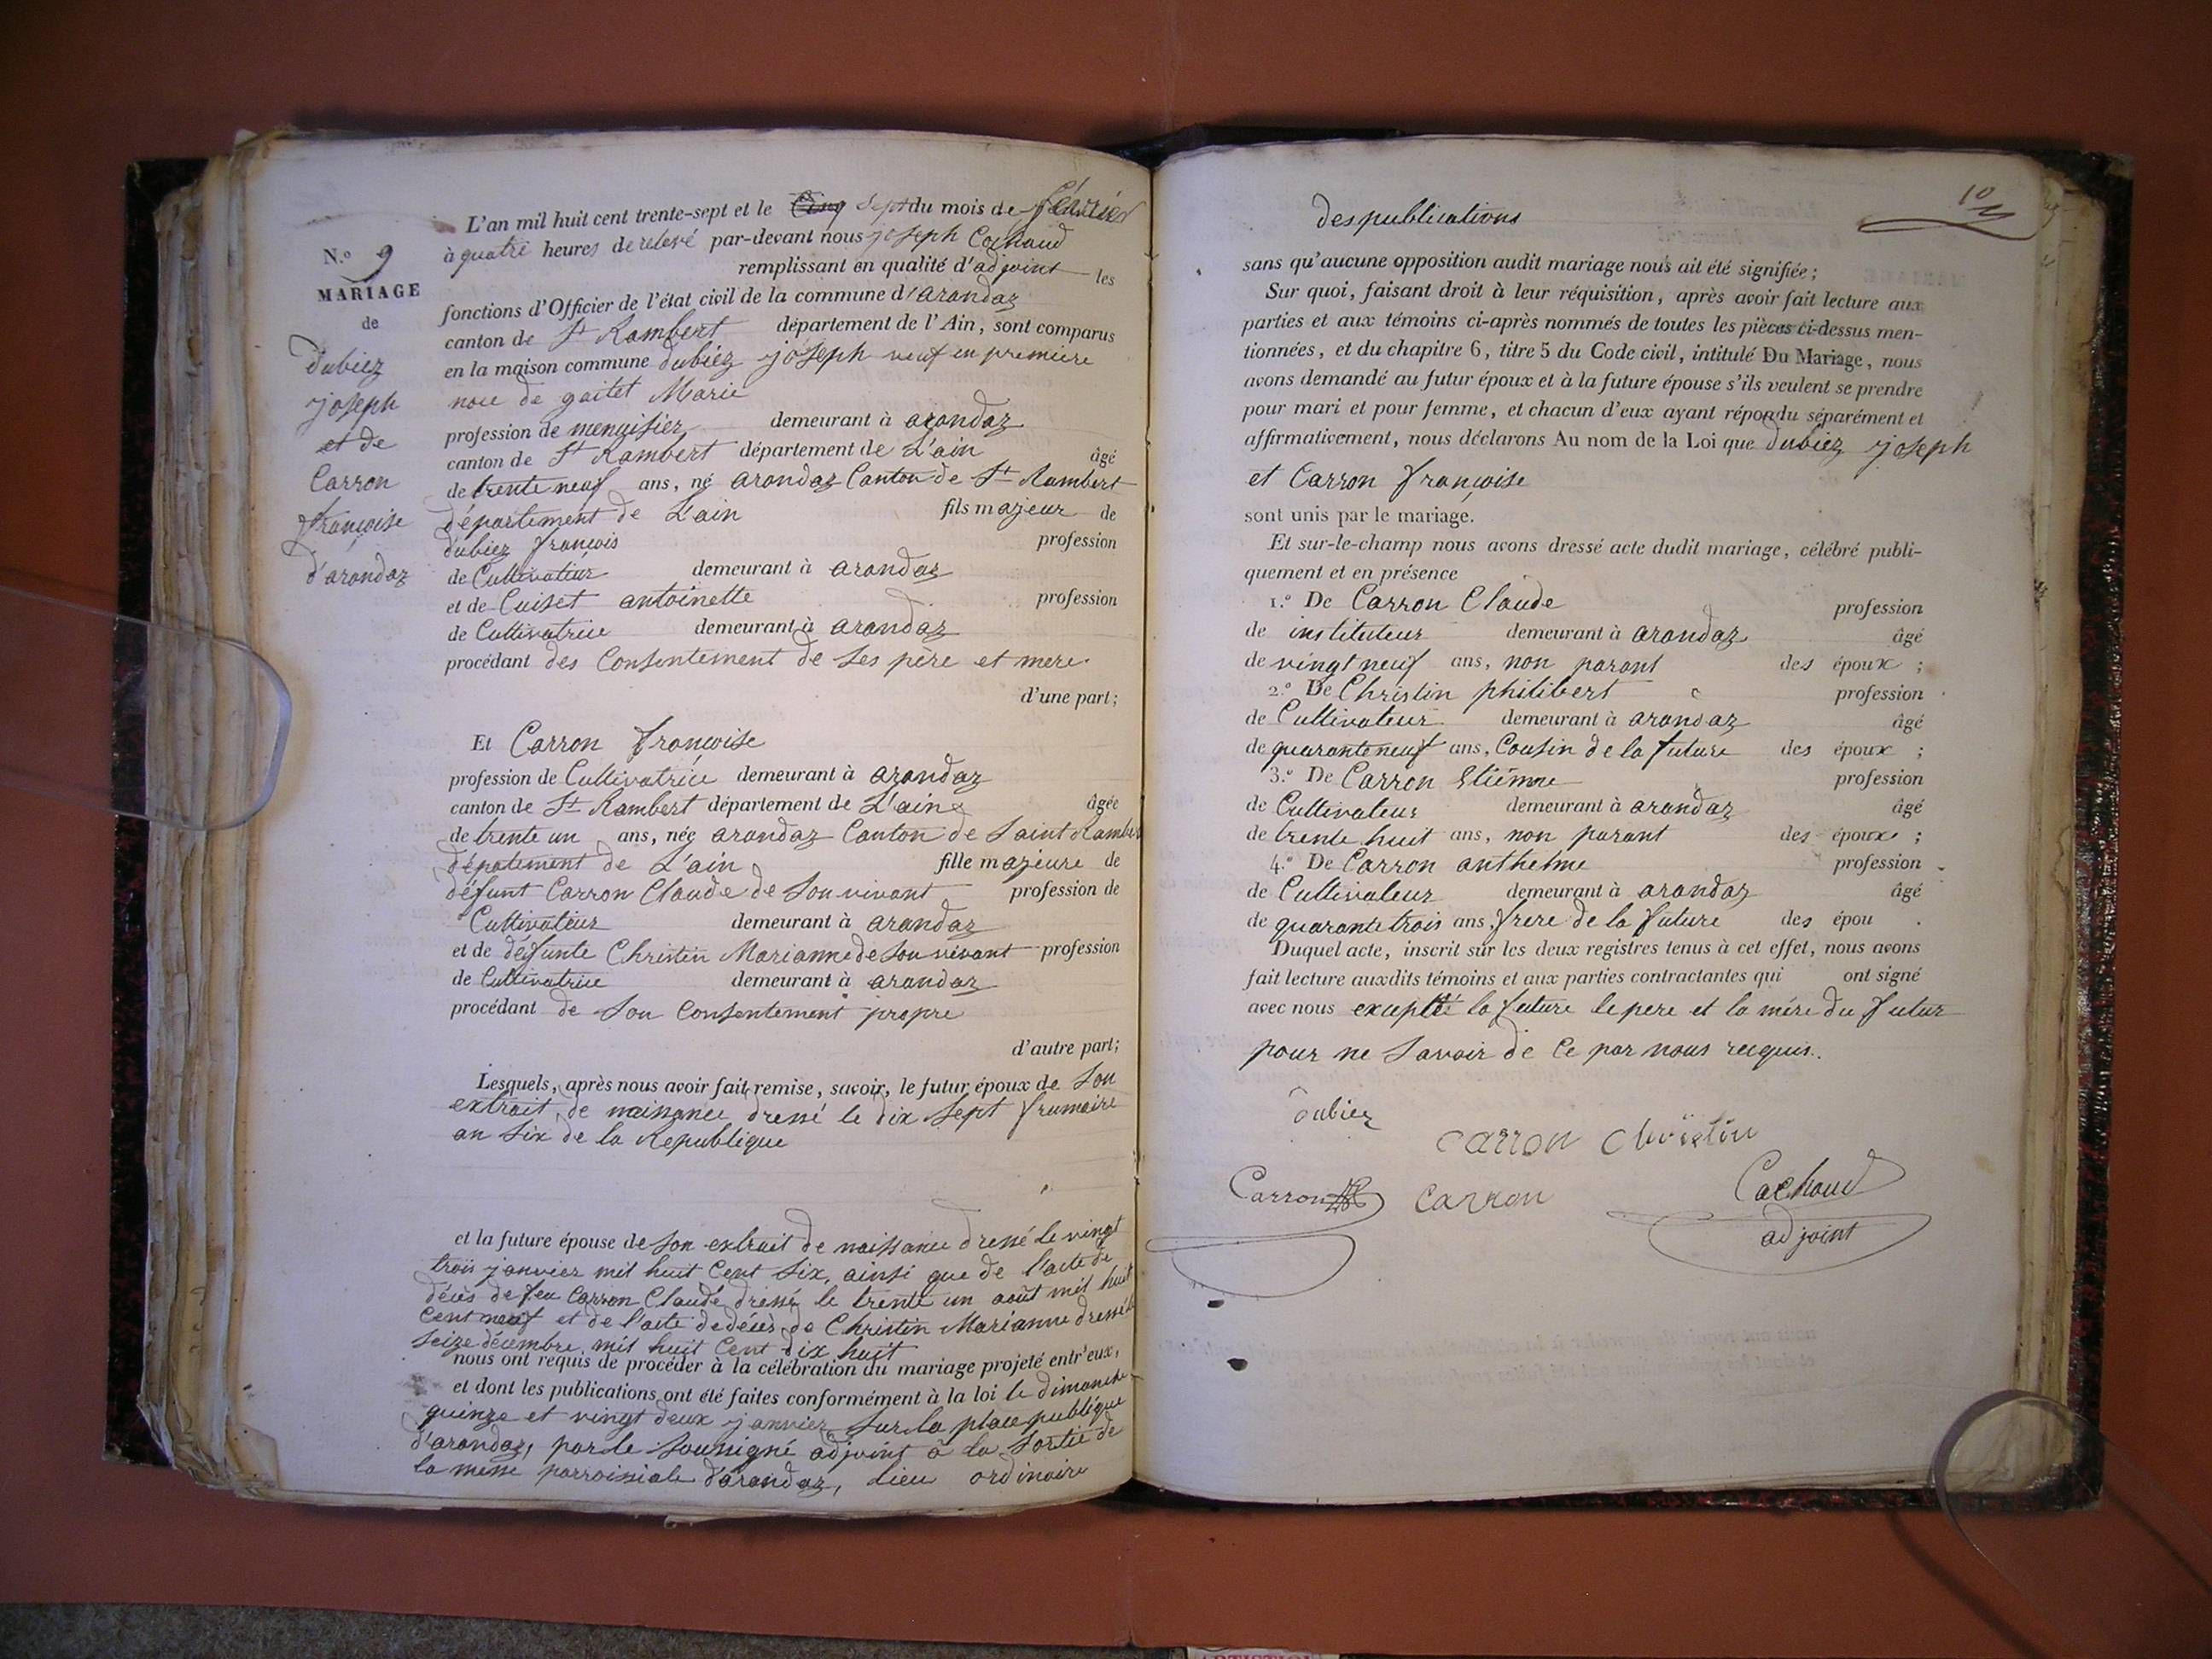 N.º 9
MARIAGE
de
Dubiez
joseph
et de
Carron
françoise
d'arandaz
L'an mil huit cent trente-sept et le Cinq Sept du mois de février
à quatre heures de relevé par-devant nous joseph Cachaud
remplissant en qualité d'adjoint les
fonctions d'Officier de l'état civil de la commune d'arandaz
canton de St Rambert département de l'Ain, sont comparus
en la maison commune dubiez joseph veuf en premiere
noce de gaitet Marie
profession de menuisier demeurant à arandaz
canton de St Rambert département de L'ain âgé
de trente neuf ans, né arandaz Canton de St Rambert
département de L'ain fils majeur de
dubiez françois profession
de Cultivateur demeurant à arandaz
et de Cuiset antoinette profession
de Cultivatrice demeurant à arandaz
procédant des Consentement de ses père et mere.
d'une part;
Et Carron françoise
profession de Cultivatrice demeurant à arandaz
canton de St Rambert département de L'ain âgée
de trente un ans, née arandaz Canton de Saint Rambert
département de L'ain fille majeure de
défunt Carron Claude de Son vivant profession de
Cultivateur demeurant à arandaz
et de défunte Christin Marianne de Son vivant profession
de Cultivatrice demeurant à arandaz
procédant de Son Consentement propre
d'autre part;
Lesquels, après nous avoir fait remise, savoir, le futur époux de Son
extrait de naissance dressé le dix Sept frumaire
an Six de la Republique
et la future épouse de Son extrait de naissance dressé le vingt
trois janvier mil huit Cent Six, ainsi que de l'acte de
décès de feu Carron Claude dressé le trente un août mil huit
Cent neuf et de l'acte de décès de Christin Marianne dressé le
Seize décembre mil huit Cent dix huit
nous ont requis de procéder à la célébration du mariage projeté entr'eux,
et dont les publications ont été faites conformément à la loi le dimanche
quinze et vingt deux janvier Sur la place publique
d'arandaz, par le Soussigné adjoint à la Sortie de
la messe parroissiale d'arandaz, Lieu ordinaire
10
des publications
sans qu'aucune opposition audit mariage nous ait été signifiée;
Sur quoi, faisant droit à leur réquisition, après avoir fait lecture aux
parties et aux témoins ci-après nommés de toutes les pièces ci-dessus men-
tionnées, et du chapitre 6, titre 5 du Code civil, intitulé Du Mariage, nous
avons demandé au futur époux et à la future épouse s'ils veulent se prendre
pour mari et pour femme, et chacun d'eux ayant répondu séparément et
affirmativement, nous déclarons Au nom de la Loi que dubiez joseph
et Carron françoise
sont unis par le mariage.
Et sur-le-champ nous avons dressé acte dudit mariage, célébré publi-
quement et en présence
1.º De Carron Claude profession
de instituteur demeurant à arandaz âgé
de vingt neuf ans, non parant des époux ;
2.º De Christin philibert profession
de Cultivateur demeurant à arandaz âgé
de quarante neuf ans, Cousin de la future des époux ;
3.º De Carron Etiénne profession
de Cultivateur demeurant à arandaz âgé
de trente huit ans, non parant des époux ;
4.º De Carron anthelme profession
de Cultivateur demeurant à arandaz âgé
de quarante trois ans, frere de la future des épou .
Duquel acte, inscrit sur les deux registres tenus à cet effet, nous avons
fait lecture auxdits témoins et aux parties contractantes qui ont signé
avec nous excepté la future le pere et la mére du futur
pour ne Savoir de Ce par nous requis.
Dubiez
Carron Christin
Carron Carron Cachaud
adjoint